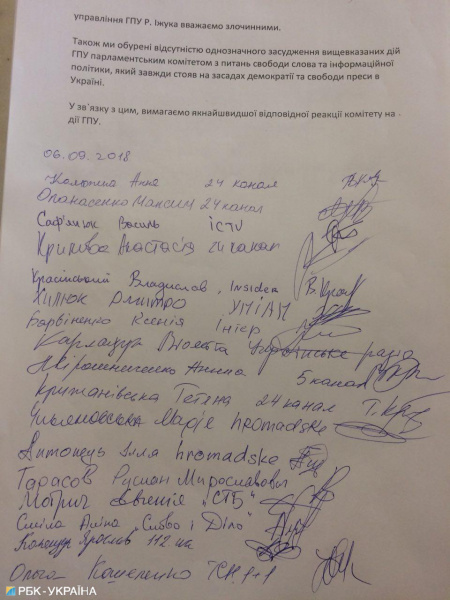 управління ГПУ Р. Іжука вважаємо злочинними.
Також ми обурені відсутністю однозначного засудження вищевказаних дій
ГПУ парламентським комітетом з питань свободи слова та інформаційної
політики, який завжди стояв на засадах демократії та свободи преси в
Україні.
У зв`язку з цим, вимагаємо якнайшвидшої відповідної реакції комітету на
дії ГПУ.
06.09.2018
Калюжна Анна 24 канал
Опанасенко Максим 24 канал
Василь ICTV
Анастасія 24 канал
Красінський Владислав, Insider
Хилюк Дмитро УНІАН
Барвіненко Ксенія Інтер
Карлащук Віолета Українське радіо
Мірошниченко 5 канал
Крижанівська Тетяна 24 канал
Марія hromadske
Антонець Ілля hromadske
Тарасов Руслан Мирославович
Мотрич Євгенія "СТБ"
Аліна "Слово і Діло"
Ярослав 112 ua
Ольга Кошеленко ТСН 1+1
РБК-УКРАЇНА